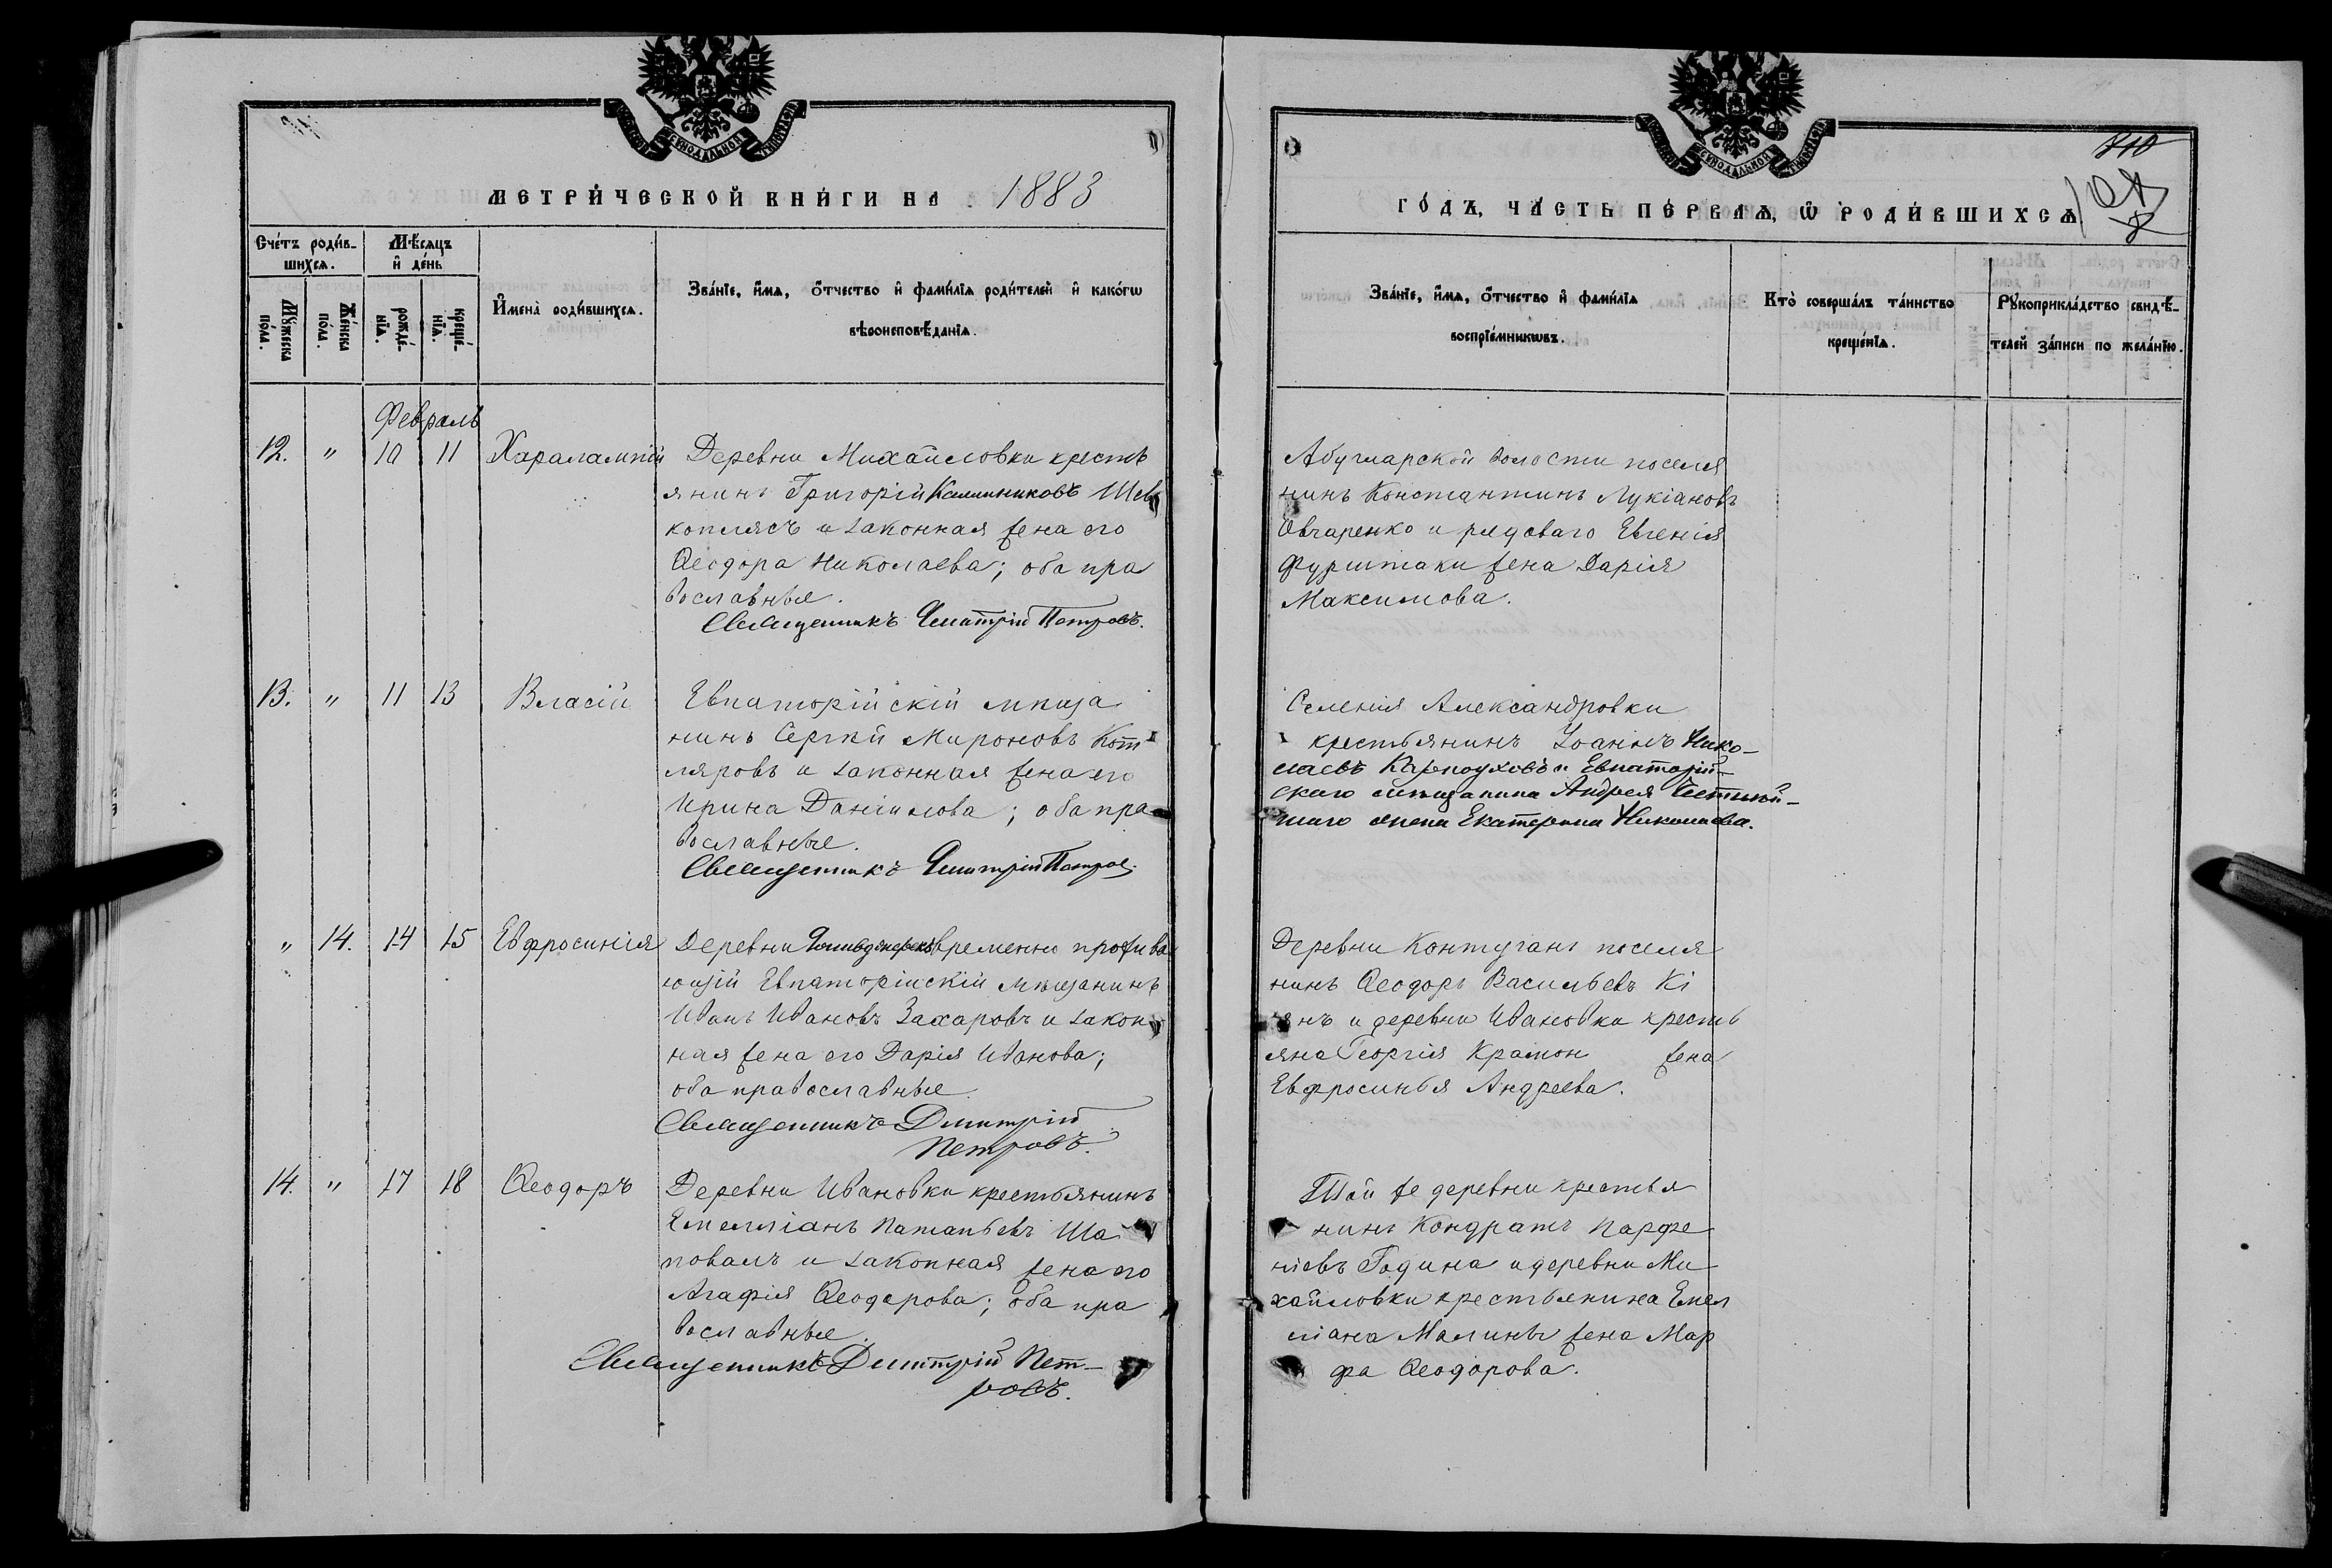 МЕТРИ́ЧЕСКОЙ КНИ́ГИ НА 1883
Сче́тъ роди́в-
шихсѧ.
Мѣ́сѧцъ
и҆ де́нь
Мꙋ́жеска по́ла.
Же́нска по́ла.
рожде́-нїѧ.
креще́-нїѧ.
И҆мена̀ роди́вшихсѧ.
Зва́нїе, и҆́мѧ, ѻ҆́тчество и҆ фами́лїѧ роди́телей и҆ како́гѡ
вѣроисповѣ́данїѧ.
Февраль
12. " 10 11 Харалампій
Деревни Михайловки кресть
янинъ Григорій Шев
коплясъ и законная жена его
Ѳеодора Николаева; оба пра
вославные.
Священникъ Дмитрій Петровъ.
13. " 11 13 Власій
Евпаторійскій мѣща
нинъ Сергѣй Мироновъ Кот
ляровъ и законная жена его
Ирина Даніилова; оба пра
вославные.
Священникъ Дмитрій Петров.
" 14. 14 15 Евфросинія
Деревни временно прожива
ющій Евпаторійскій мѣщанинъ
Иванъ Ивановъ Захаровъ и закон
ная жена его Дарія Иванова;
оба православные.
Священникъ Дмитрій
Петровъ.
14. " 17 18 Ѳеодоръ
Деревни Ивановки крестьянинъ
Емелліанъ Патапьевъ Ша
повалъ и законная жена его
Агафія Ѳеодорова; оба пра
вославные.
Священникъ Дмитрій Пет-
ровъ.
ГО́ДЪ, ЧА́СТЬ ПЕ́РВАѦ, Ѡ҆ РОДИ́ВШИХСѦ
Зва́нїе, и҆́мѧ, ѻ҆́тчество и҆ фами́лїѧ
воспрїе́мникѡвъ.
Кто̀ соверша́лъ та́инство
креще́нїѧ.
Рꙋкоприкла́дство свидѣ́-
телей за́писи по жела́нїю.
Абузларской волости поселя
нинъ Константинъ Лукіановъ
Овчаренко и рядоваго Евгенія
Фурштаки жена Дарія
Максимова.
Селенія Александровки
крестьянинъ Іоаннъ Нико-
лаевъ Карпоуховъ и Евпаторій-
скаго мѣщанина Андрея
жена Екатерина Николаева.
Деревни Контуганъ поселя
нинъ Ѳеодоръ Васильевъ Кі
янъ и деревни Ивановки кресть
яна Георгія Крамон жена
Евфросинья Андреева.
Той же деревни крестья
нинъ Кондратъ Парфе
ніевъ Година и деревни Ми
хайловки крестьянина Емел
ліана Малины жена Мар
фа Ѳеодорова.